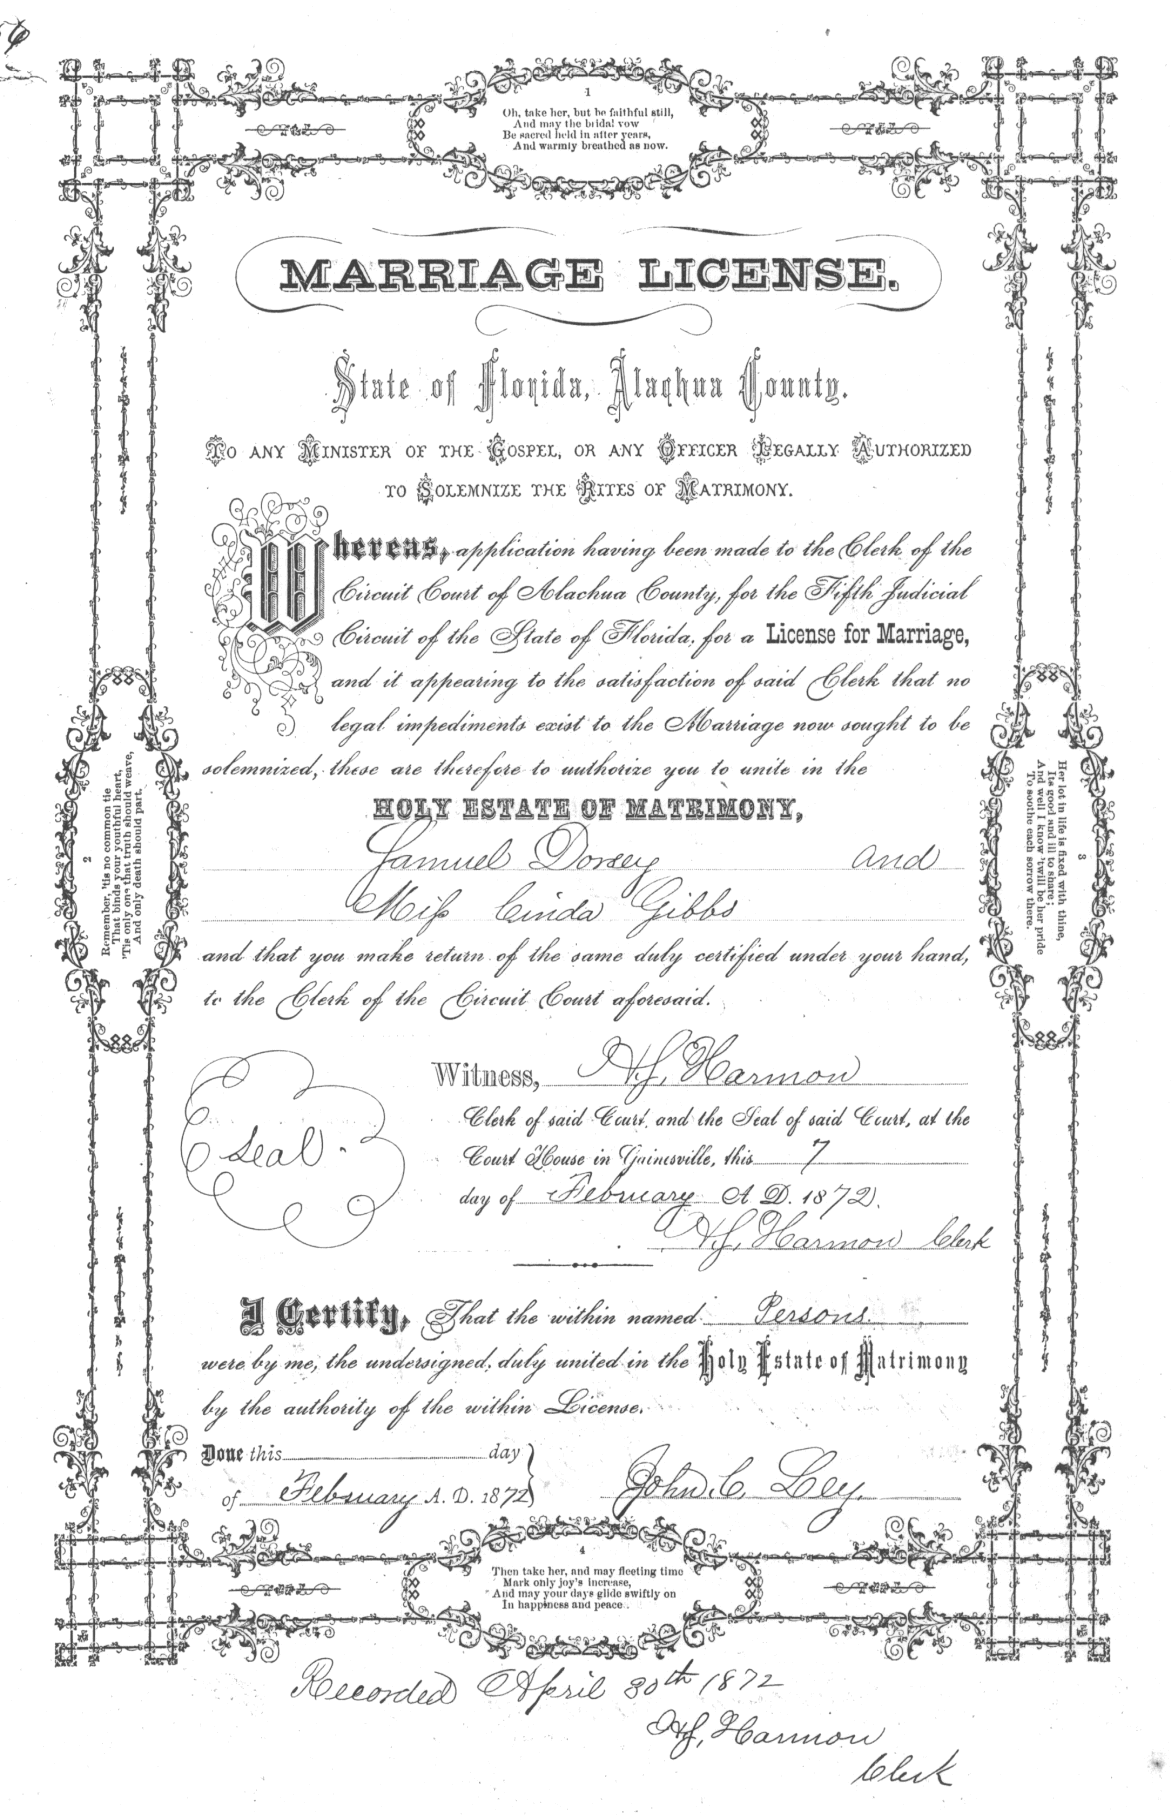 1
Oh, take her, but be faithful still,
And may the bridal vow
Be sacred held in after years,
And warmly breathed as now.
MARRIAGE LICENSE.
State of Florida, Alachua County.
To any Minister of the Gospel, or any Officer Legally Authorized
to Solemnize the Rites of Matrimony.
Whereas, application having been made to the Clerk of the
Circuit Court of Alachua County, for the Fifth Judicial
Circuit of the State of Florida, for a License for Marriage,
and it appearing to the satisfaction of said Clerk that no
legal impediments exist to the Marriage now sought to be
solemnized, these are therefore to authorize you to unite in the
HOLY ESTATE OF MATRIMONY,
Samuel Dorsey and
Miss Cinda Gibbs
and that you make return of the same duly certified under your hand,
to the Clerk of the Circuit Court aforesaid.
2
Remember, 'tis no common tie
That binds your youthful heart,
'Tis only one that truth should weave,
And only death should part.
3
Her lot in life is fixed with thine,
Its good and ill to share;
And well I know 'twill be her pride
To soothe each sorrow there.
Witness, H.S. Harmon
Clerk of said Court, and the Seal of said Court, at the
Court House in Gainesville, this 7
day of February A.D. 1872.
Seal.
H.S. Harmon Clerk
I Certify, That the within named Persons
were by me, the undersigned, duly united in the Holy Estate of Matrimony
by the authority of the within License.
Done this day
of February A.D. 1872
John C. Ley.
4
Then take her, and may fleeting time
Mark only joy's increase,
And may your days glide swiftly on
In happiness and peace.
Recorded April 30th 1872
H.S. Harmon
Clerk